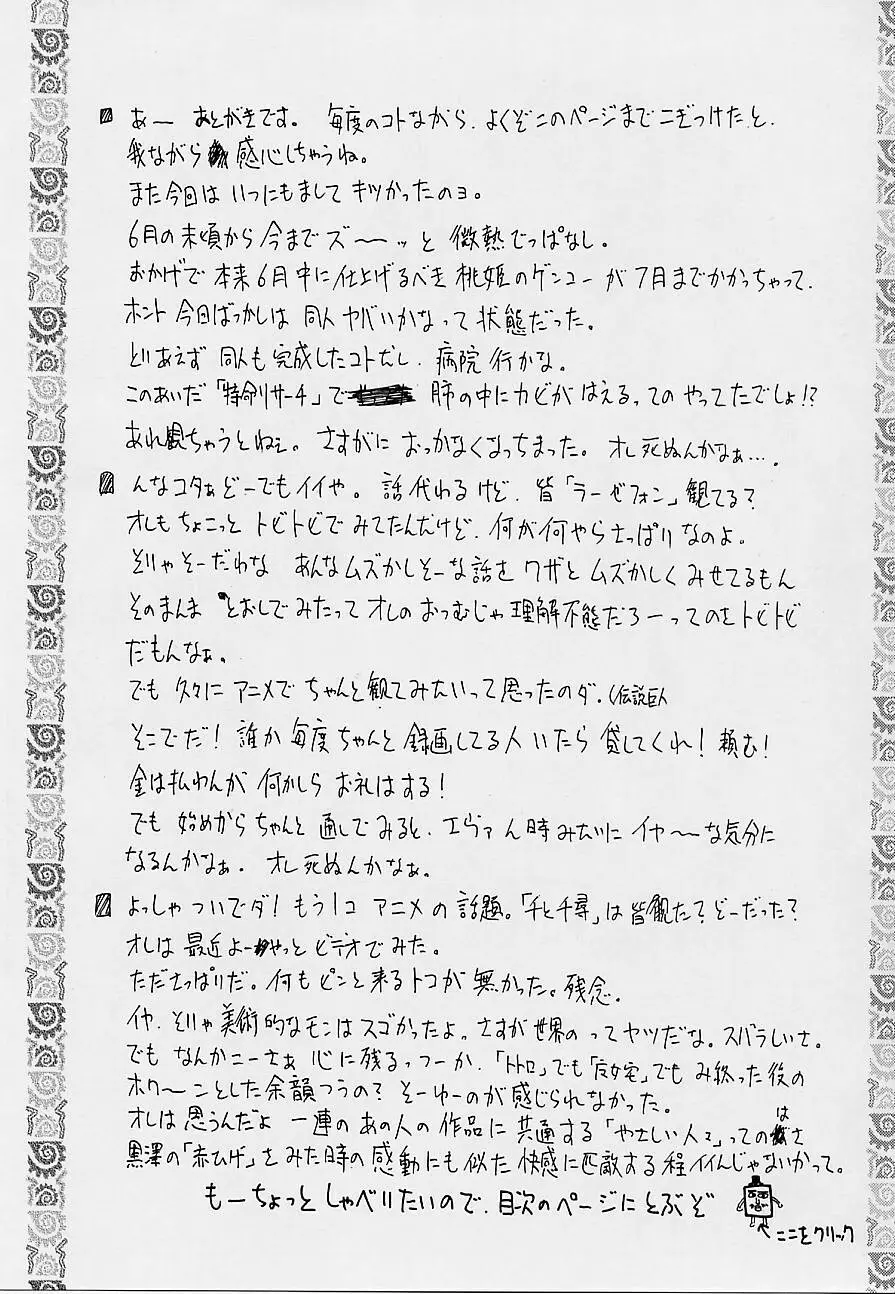 あー あとがきです。 毎度のコトながら、よくぞこのページまでこぎつけたと、
我ながら感心しちゃうね。
また今回は いつにもまして キツかったのヨ。
6月の末頃から 今まで ズ〜〜ッと 微熱でっぱなし。
おかげで 本来6月中に仕上げるべき 桃姫のゲンコーが 7月までかかっちゃって、
ホント 今回ばっかしは 同人 ヤバいかなって 状態だった。
とりあえず 同人も 完成したコトだし、病院 行かな。
このあいだ「特命リサーチ」で 肺の中にカビがはえるってのやってたでしょ!?
あれ観ちゃうとねェ。さすがに おっかなくなっちまった。 オレ死ぬんかなぁ…．
んなコタぁ どーでもイイや。 話代わるけど、皆「ラーゼフォン」観てる?
オレもちょこっと トビトビで みてたんだけど、何が何やらさっぱりなのよ。
そりゃそーだわな あんなムズかしそーな話を ワザと ムズかしく みせてるもん
そのまんま とおしでみたって オレのおつむじゃ理解不態だろーってのをトビトビ
だもんなぁ。
でも 久々に アニメで ちゃんと観てみたいって思ったのダ。(伝説巨人
そこでだ! 誰か 毎度ちゃんと 録画してる人 いたら 貸してくれ! 頼む!
金は払わんが 何かしら お礼はする!
でも 始めからちゃんと 通しでみると、エヴァん時みたいに イヤ〜〜な気分に
なるんかなぁ。 オレ死ぬんかなぁ。
よっしゃ ついでダ! もう1コ アニメの話題。「千と千尋」は皆観た? どーだった?
オレは 最近 よーやっと ビデオでみた。
たださっぱりだ。何もピンと来るトコが 無かった。残念．
イヤ、そりゃ美術的なモンはスゴかったよ。さすが世界の ってヤツだな。スバラしいさ。
でも なんかこーさぁ 心に残るっつーか、「トトロ」でも「魔女宅」でも み終った後の
ホワ〜ンとした余韻つうの? そーゆーのが感じられなかった。
オレは思うんだよ 一連の あの人の 作品に 共通する「やさしい人々」ってのはさ
黒澤の「赤ひげ」をみた時の感動にも似た 快感に匹敵する程イイんじゃないかって。
もーちょっと しゃべりたいので、目次のページにとぶぞ
ここをクリック